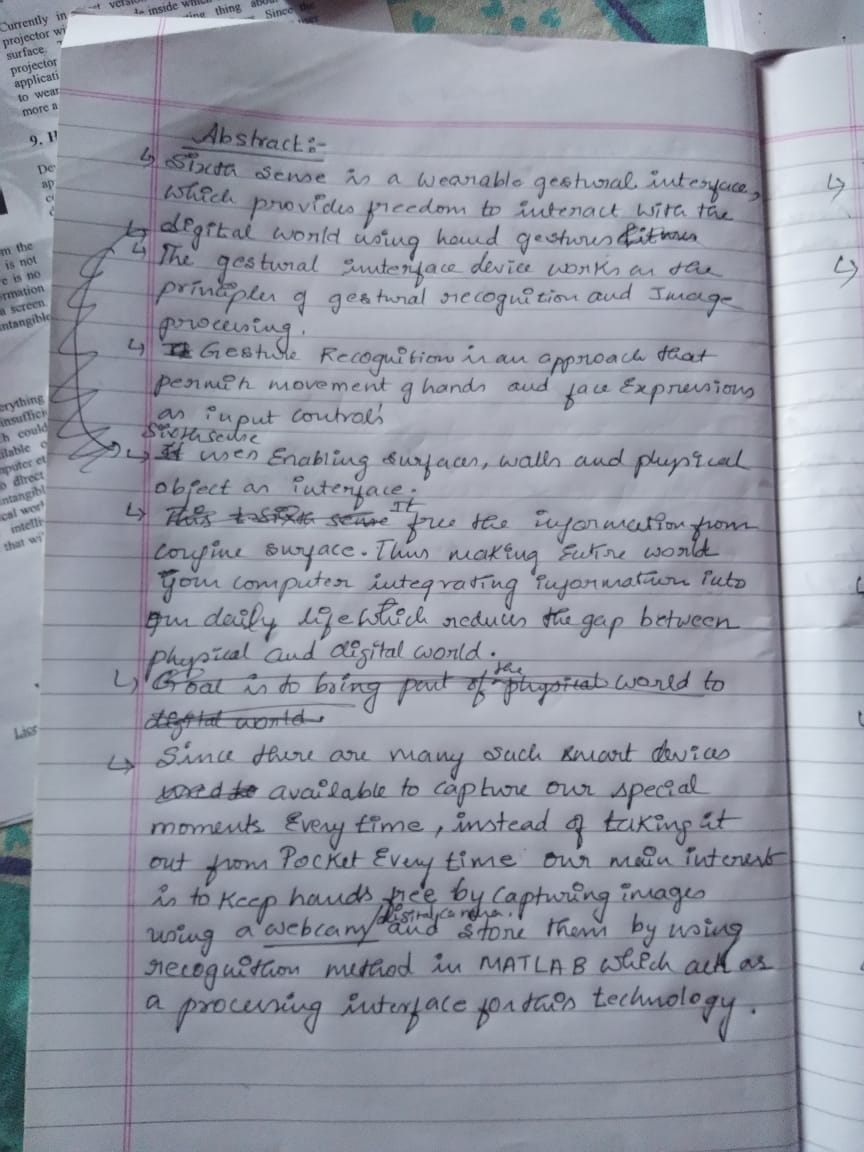 Currently in
projector wi
surface.
projector
applicati
to wear
more a
inside which
thing about
Since the
9. I
De
ap
m the
is not
e is no
ormation
a screen
ntangible
erything
insuffici
h could
ilable o
mputer et
o direct
intangibl
cal worl
intelli
that wi
Liss
Abstract:-
↳ Sixth Sense is a wearable gestural interface,
which provides freedom to interact with the
↳ digital world using hand gestures
↳ The gestural innterface device works on the
principles of gestural recognition and Image
processing.
↳ It Gesture Recognition is an approach that
permits movement of hands and face Expressions
as input controls
Sixth sense
↳ It uses Enabling surfaces, walls and physical
object as interface.
↳ This sixth sense It free the information from
confine surface. Thus making Entire world
your computer integrating information into
our daily life which reduces the gap between
physical and digital world.
↳ Goal is to bring part of the physical world to
digital world.
↳ Since there are many such smart devices
used to available to capture our special
moments Every time, instead of taking it
out from Pocket Every time our main interest
is to keep hands free by capturing images
using a webcam/digital camera. and store them by using
recognition method in MATLAB which act as
a processing interface for this technology.